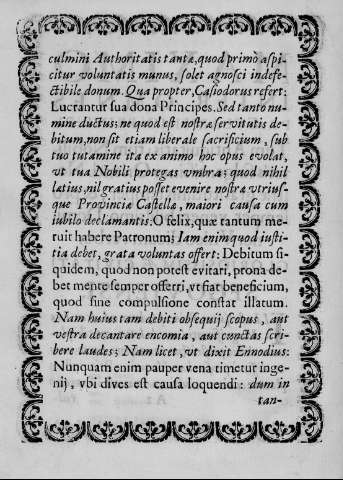 culmini Authoritatis tantæ, quod primò aspi-
citur voluntatis munus, solet agnosci indefe-
ctibile donum. Qua propter, Casiodorus refert:
Lucrantur sua dona Principes. Sed tanto nu-
mine ductus; ne quod est nostræ servitutis de-
bitum, non sit etiam liberale sacrificium, sub
tuo tutamine ita ex animo hoc opus evolat,
vt tua Nobili protegas vmbra; quod nihil
latius, nil gratius posset evenire nostræ vtrius-
que Provinciæ Castellæ, maiori causa cum
iubilo declamantis: O felix, quæ tantum me-
ruit habere Patronum; Iam enim quod iusti-
tia debet, grata voluntas offert: Debitum si-
quidem, quod non potest evitari, prona de-
bet mente semper offerri, vt fiat beneficium,
quod sine compulsione constat illatum.
Nam huius tam debiti obsequij scopus, aut
vestra decantare encomia, aut cunctas scri-
bere laudes; Nam licet, vt dixit Ennodius:
Nunquam enim pauper vena timetur inge-
nij, vbi dives est causa loquendi: dum in
tan-